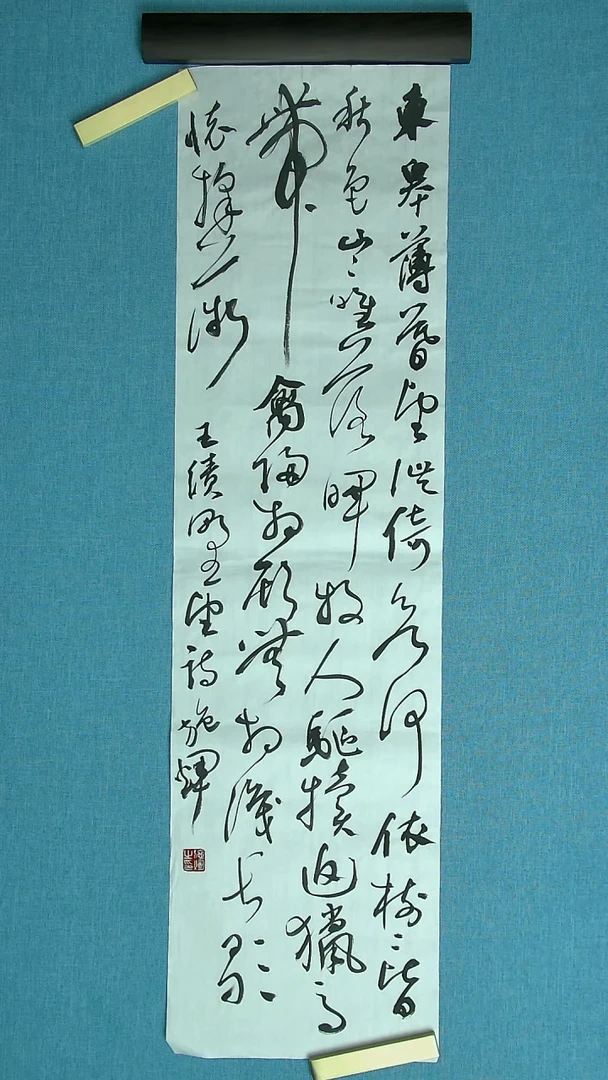 東皋薄暮望徙倚欲何依樹〻皆
秋色山〻唯落暉牧人驅犢返獵馬
帶禽歸相顧無相識長歌
懷採薇 王績野望詩 施輝